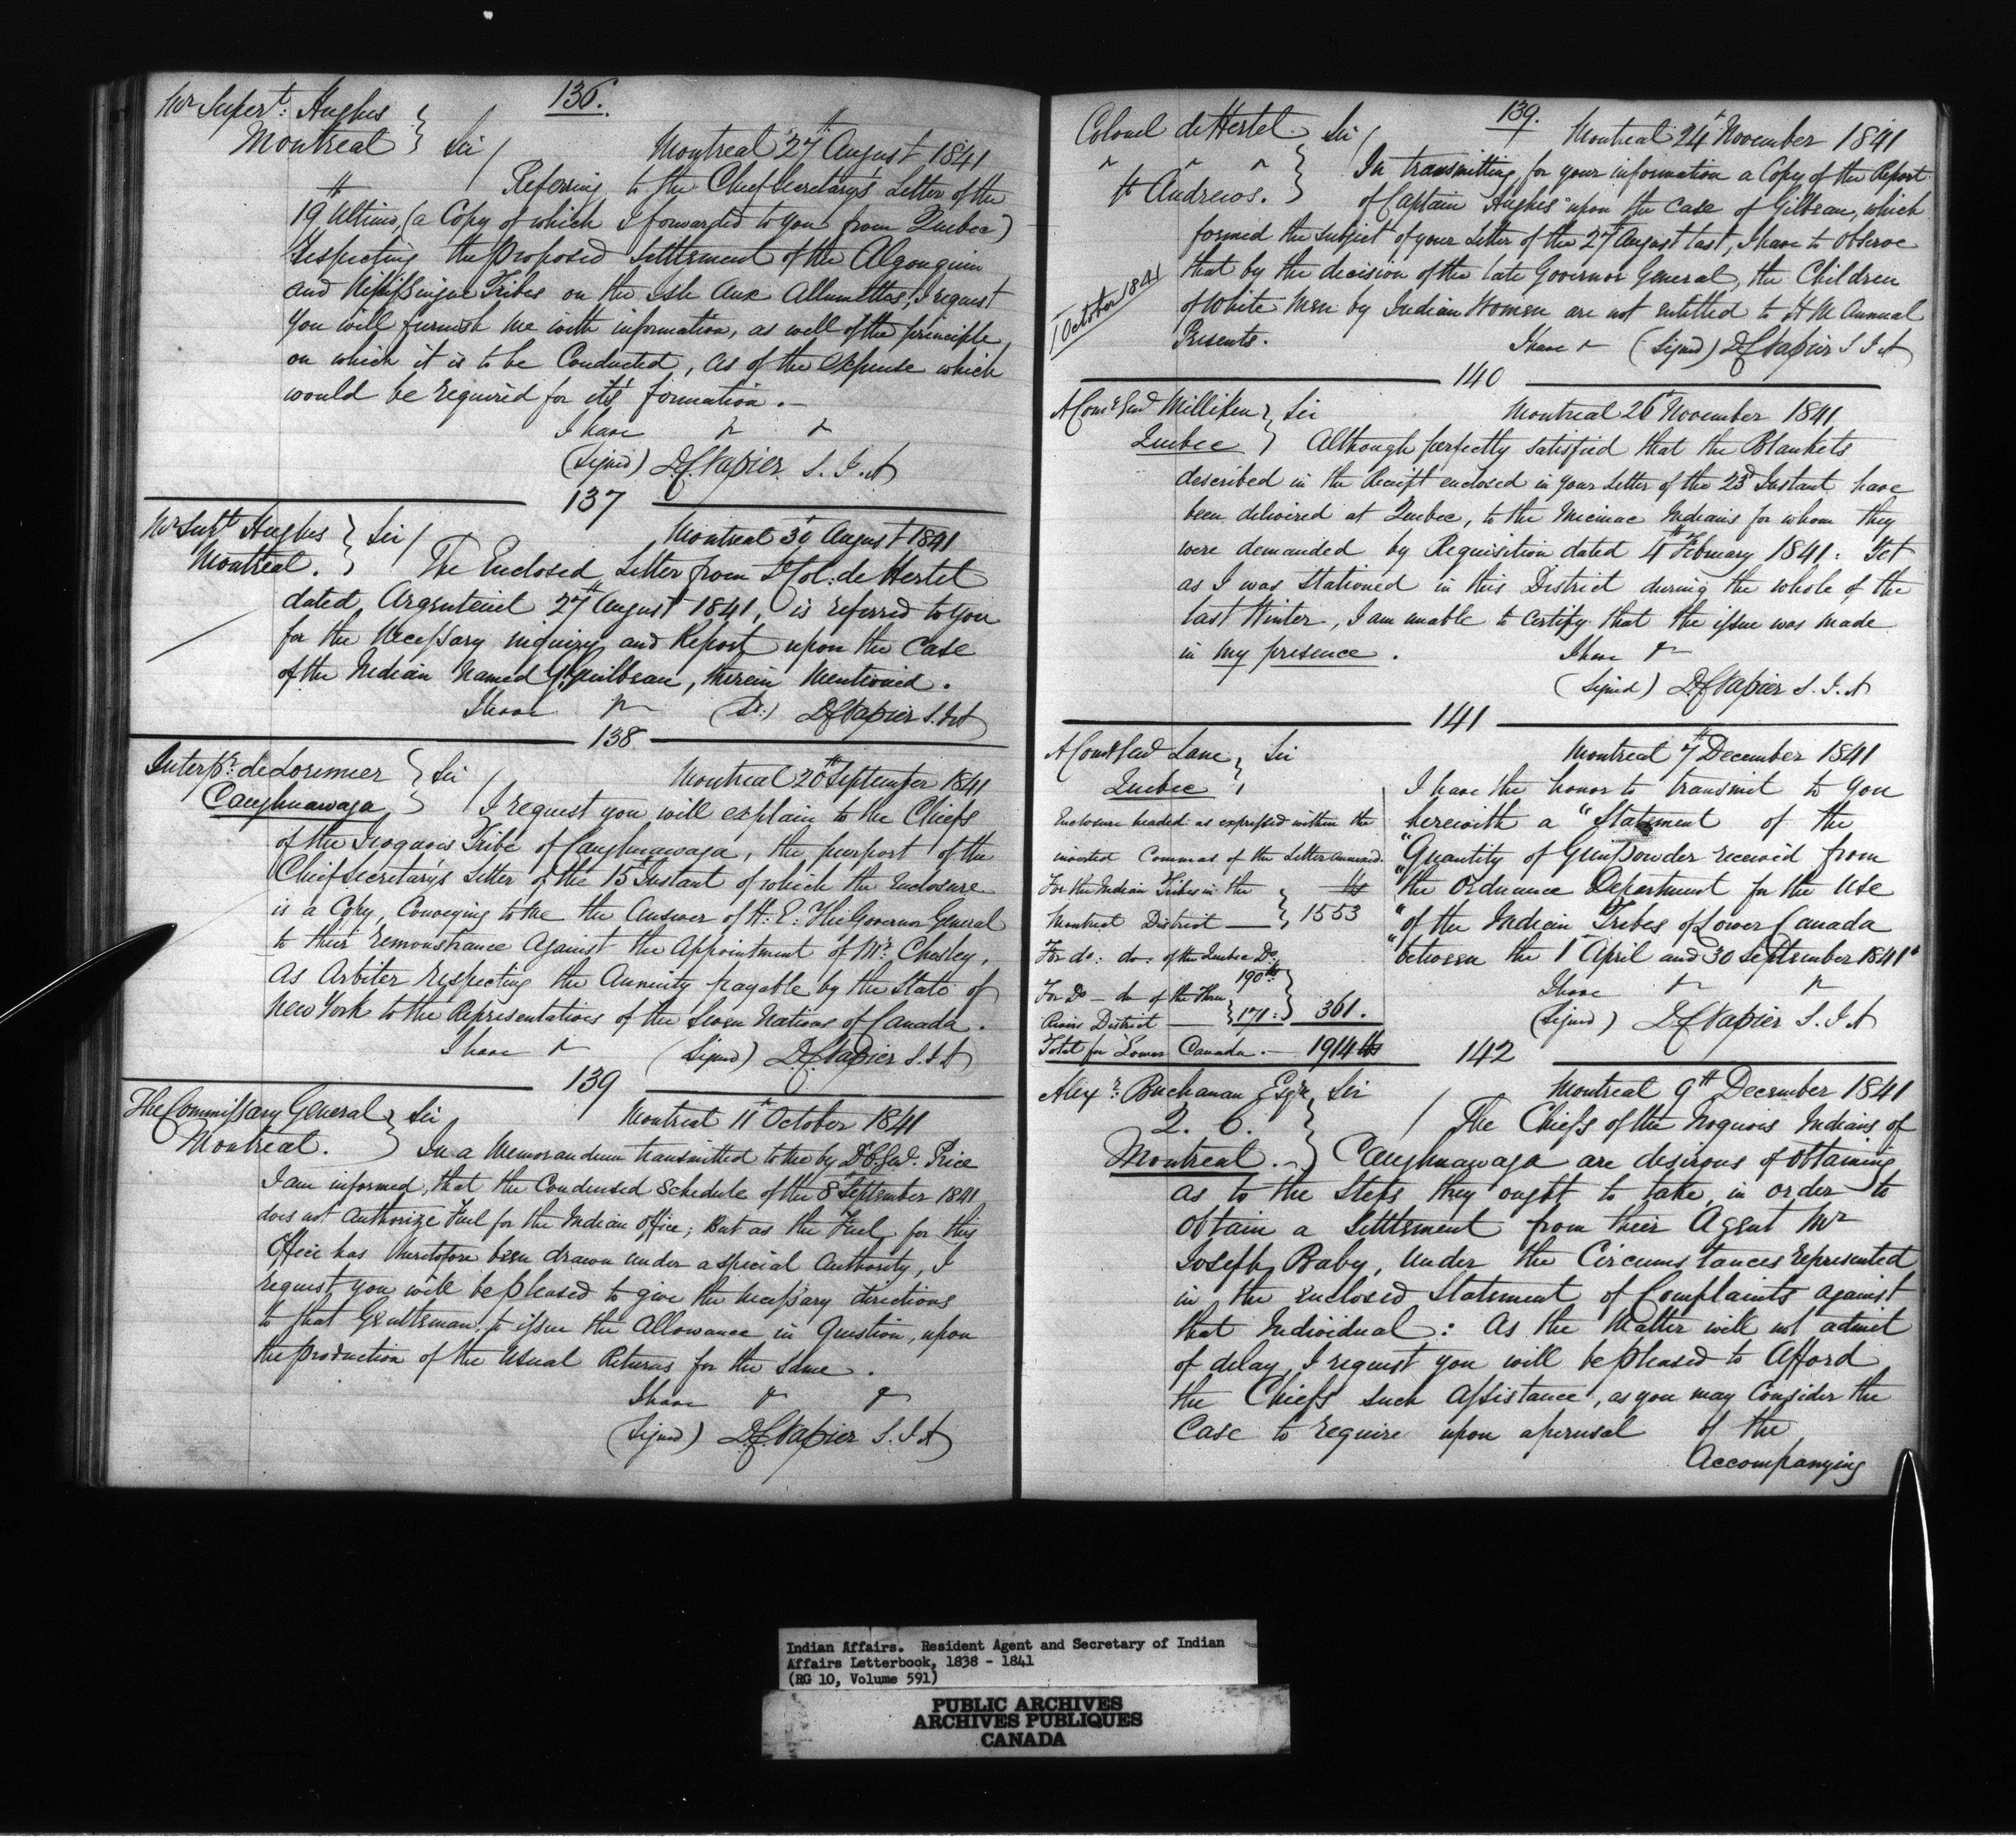 136.
Mr Supert: Hughes
Montreal } Sir / Montreal 27th August 1841
Referring to the Chief Secretary's Letter of the
19th Ultimo, (a Copy of which I forwarded to you from Quebec)
Respecting the proposed Settlement of the Algonquin
and Nipissingue Tribes on the Isle Aux Allumettes, I request
you will furnish me with information, as well of the principle
on which it is to be Conducted, as of the Expense which
would be required for it's formation. –
I have &c &c
(Signed) D C Napier. S. I. A
137
Mr Supt Hughes } Sir / Montreal 30 August 1841
Montreal. } The Enclosed Letter from Lt Col: de Hertel
dated Argenteuil 27th August 1841, is referred to you
for the Necessary inquiry and Report upon the Case
of the Indian Named Guilbeau, therein Mentioned.
I have &c (Sd.) D C Napier S. I. A
138
Interpr: de Lorimier } Sir / Montreal 20th September 1841
Caughnawaga } I request you will explain to the Chiefs
of the Iroquois Tribe of Caughnawaga, the purport of the
Chief Secretary's Letter of the 15th Instant of which the Enclosure
is a Copy, Conveying to me the Answer of H. E. The Governor General
to their remonstrance Against the Appointment of Mr. Chesley,
as Arbiter respecting the Annuity payable by the State of
New York to the Representatives of the Seven Nations of Canada.
I have &c (Signed) D C Napier S. I. A
139
The Commissary General } Sir Montreal 11th October 1841
Montreal. } In a Memorandum transmitted to me by D C Genl. Price
I am informed, that the Condensed Schedule of the 8th September 1841,
does not Authorize Fuel for the Indian Office; But as the Fuel for this
Office has heretofore been drawn under a special Authority, I
request you will be pleased to give the necessary directions
to that Gentleman, to issue the Allowance in Question, upon
the production of the Usual Returns for the Same.
I have &c &c
(Signed) D C Napier S. I. A
139.
Colonel de Hertel } Sir / Montreal 24th November 1841
St Andrews. } In transmitting for your information a Copy of the Report
of Captain Hughes upon the Case of Gilbeau, which
formed the Subject of your Letter of the 27th August last, I have to Observe
1 October 1841
that by the decision of the late Governor General, the Children
of White Men by Indian Women are not entitled to H M Annual
Presents. I have &c (Signed) D C Napier S I A
140
A Comy Genl Milliken } Sir Montreal 26th November 1841
Quebec } Although perfectly satisfied that the Blankets
described in the Receipt enclosed in your Letter of the 23d Instant have
been delivered at Quebec, to the Micmac Indians for whom they
were demanded by Requisition dated 4th February 1841: Yet
as I was Stationed in this District during the whole of the
last Winter, I am unable to Certify that the issue was made
in my presence. I have &c
(Signed) D C Napier S. I. A
141
A Comy Genl Lane } Sir Montreal 7th December 1841
Quebec } I have the honor to transmit to you
herewith a "Statement of the
"Quantity of Gunpowder received from
"the Ordnance Department for the Use
"of the Indian Tribes of Lower Canada
"between the 1st April and 30 September 1841"
I have &c &c
(Signed) D C Napier S. I. A
Enclosure headed as expressed within the
inverted Commas of the Letter annexed.
For the Indian Tribes in the } lbs
Montreal District — } 1553
For do: do. of the Quebec Do: 190 lbs
For Do – do of the Three
Rivers District — 171: } 361.
Total for Lower Canada. – 1914 lbs
142
Alexr. Buchanan Esqr } Sir / Montreal 9th December 1841
Q. C. } The Chiefs of the Iroquois Indians of
Montreal. – } Caughnawaga are desirous of obtaining
as to the Steps they ought to take, in order to
Obtain a Settlement from their Agent Mr
Joseph Baby, Under the Circumstances represented
in the enclosed Statement of Complaints against
that Individual: As the Matter will not admit
of delay, I request you will be pleased to Afford
the Chiefs such Assistance, as you may Consider the
Case to require upon a perusal of the
Accompanying
Indian Affairs. Resident Agent and Secretary of Indian
Affairs Letterbook, 1838 - 1841
(RG 10, Volume 591)
PUBLIC ARCHIVES
ARCHIVES PUBLIQUES
CANADA